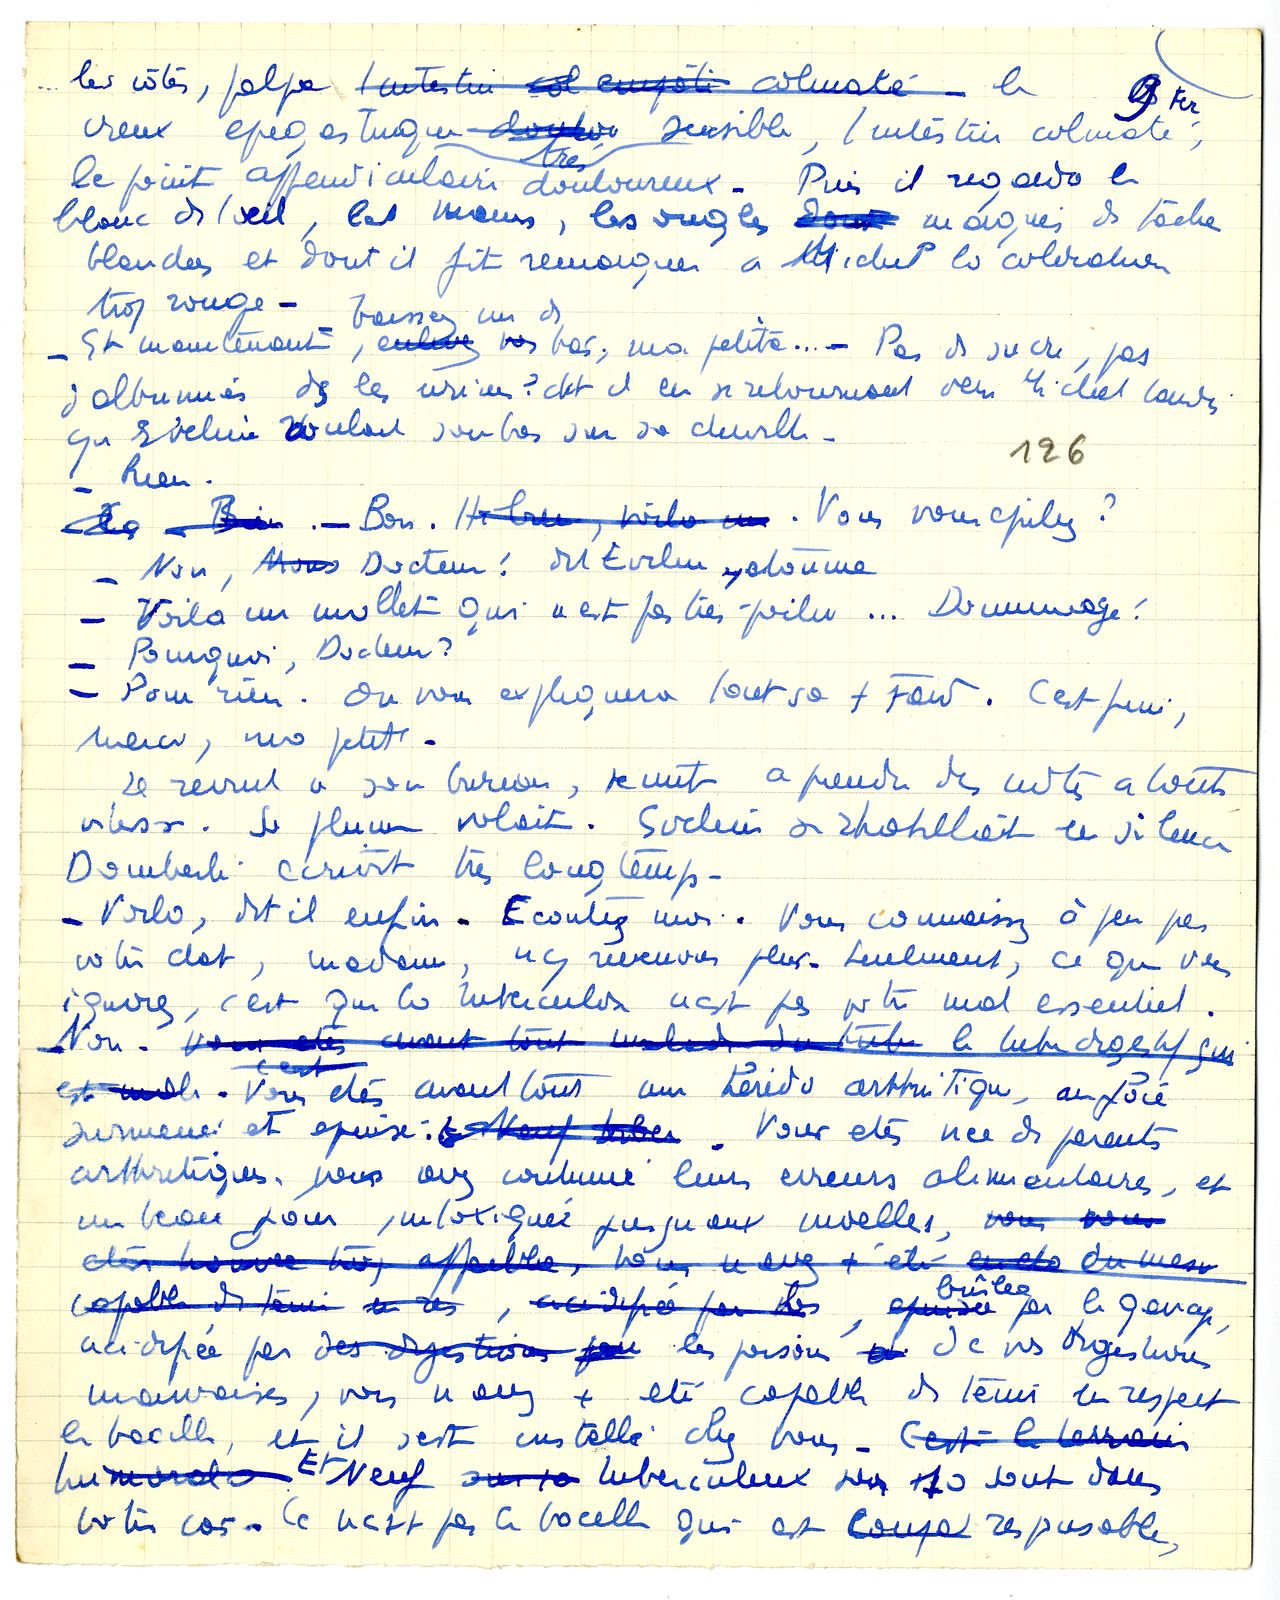 ... les côtés, palpa l'intestin col empâté colmaté - le
9 ter
creux épigastrique doulou sensible, l'intestin colmaté,
très
le point appendiculaire douloureux - Puis il regarda le
blanc de l'oeil, les mains, les ongles dont marqués de tâches
blanches et dont il fit remarquer a Michel la coloration
trop rouge -
baissez un de
- Et maintenant, enlevez vos bas, ma petite... - Pas de sucre, pas
d'albumines ds les urines? dit il en se retournant vers Michel tandis
qu'Eveline roulait son bas sur sa cheville -
126
- Rien.
- Bien. - Bon. He bien, voila un . Vous vous épilez?
- Non, Mons Docteur! dit Eveline, étonnée
- Voilà un mollet qui n'est pas très poilu ... Dommage!
- Pourquoi, Docteur?
- Pour rien. On vous expliquera tout ça + tard. C'est fini,
merci, ma petite -
Il revint a son bureau, se mit a prendre des notes a toute
vitesse. Sa plume volait. Eveline se rhabillait en silence
Domberlé écrivit très longtemps -
- Voila, dit il enfin - Ecoutez moi. Vous connaissez à peu près
votre état, madame, n'y revenons plus. Seulement, ce que vous
ignorez, c'est que la tuberculose n'est pas votre mal essentiel.
- Non - Vous etes avant tout malade du tube le tube digestif qui
c'est
est malade - Vous etes avant tout une hérédo arthritique, au foie
surmené et épuisé. Neuf tuber - Vous etes née de parents
arthritiques. vous avez continué leurs erreurs alimentaires, et
un beau jour, intoxiquée jusqu'aux moelles, vous vous
etes trouvée trop affaiblie, vous n'avez + été en eta du mesu
capable de tenir en res, acidifiée par les, épuisée par le gavage,
brulée
acidifiée par des digestions par les poisons de vos digestions
mauvaises, vous n'avez + été capable de tenir en respect
le bacille, et il s'est installé chez vous - C'est le terrain
humoral Et Neuf sur 10 tuberculeux sur 10 sont dans
votre cas - Ce n'est pas le bacille qui est coupa responsable,